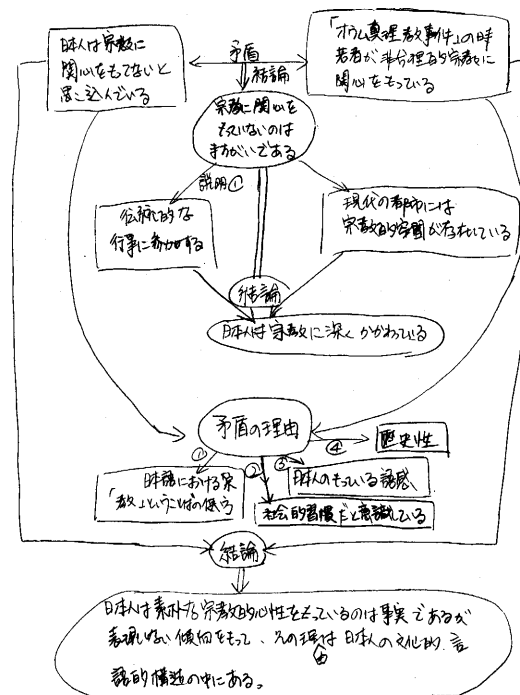 日本人は宗教に
関心をもてないと
思い込んでいる
矛盾
結論
「オウム真理教事件」の時
若者が非合理的宗教に
関心をもっている
宗教に関心を
もっていないのは
まちがいである
説明①
伝統的な
行事に参加する
現代の都市には
宗教的空間が存在している
結論
日本人は宗教に深くかかわっている
矛盾の理由
①
②
③
④
歴史性
日本語における
「教」ということばの使う
日本人のもっている語感
社会的習慣だと意識している
結論
日本人は素朴な宗教的心性をもっているのは事実であるが
表現しない傾向をもって、その理由は日本人の文化的、言
語的構造の中にある。